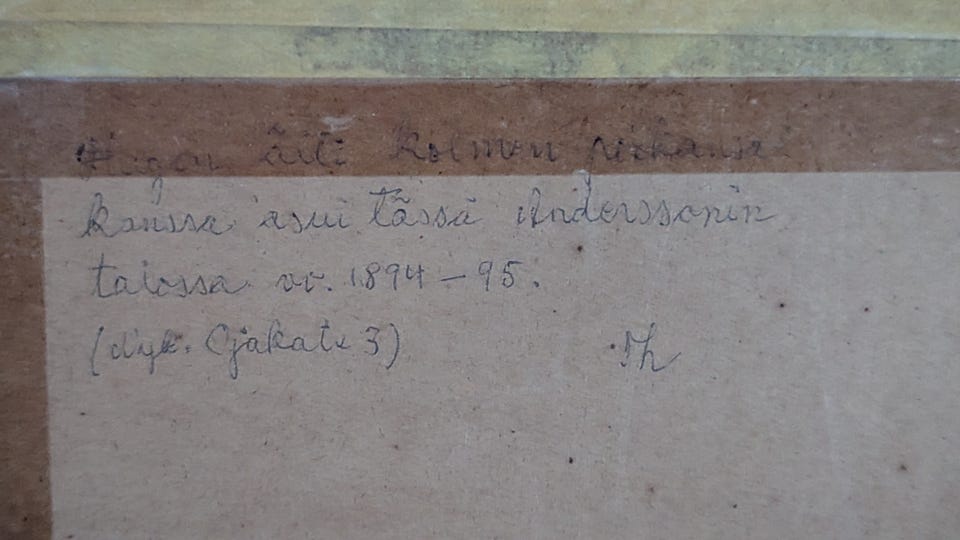 Hugon äiti kolmen poikansa
kanssa asui tässä Anderssonin
talossa vv. 1894-95.
(nyk. Ojakatu 3) Th